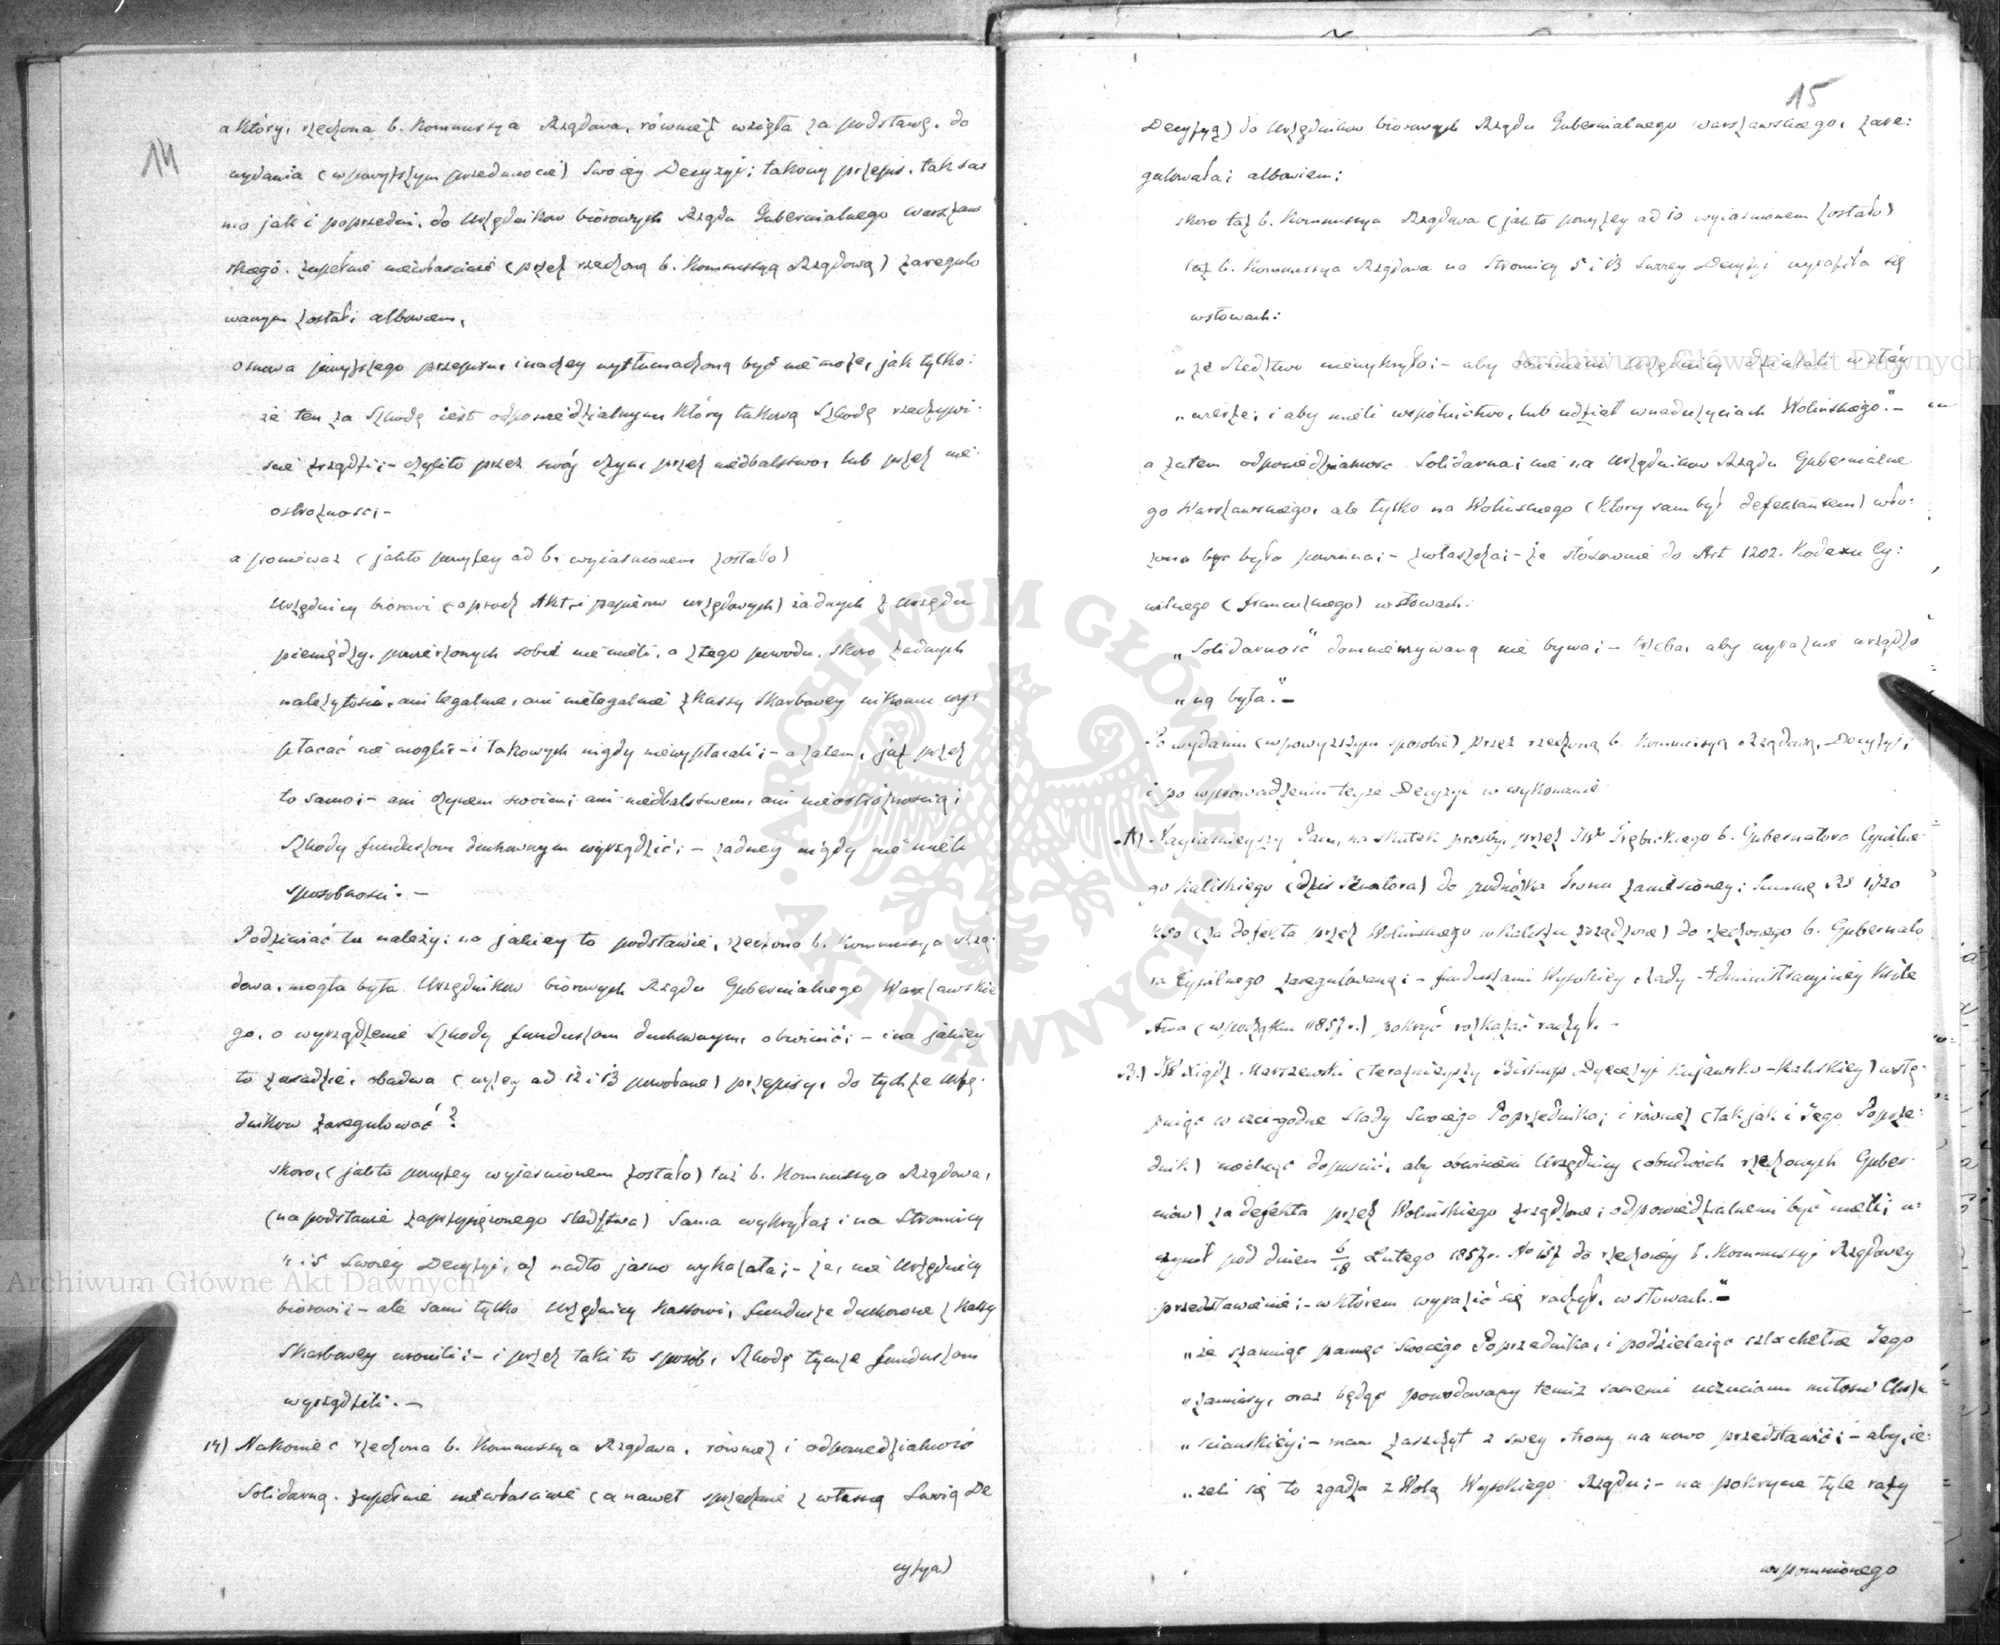 14
a który, rzeczona b. Kommissya Rządowa, również wzięła za podstawę, do
wydania (w powyższym przedmiocie) Swoiey Decyzyi; takowy przepis, tak sa=
mo jak i poprzedni, do Urzędników biórowych Rządu Gubernialnego Warszaw
skiego, zupełnie niewłaściwie (przez rzeczoną b. Kommissyą Rządową) zaregulo
wanym został; albowiem,
osnowa powyższego przepisu, inaczey wytłumaczoną być nie może, jak tylko:
że ten za Szkodę iest odpowiedzialnym który takową Szkodę rzeczywi=
ście zrządził;- czyli to przez swóy czyn, przez niedbalstwo, lub przez nie=
ostrożność;-
a ponieważ (jak to powyżey ad 6. wyiaśnionem zostało)
Urzędnicy biórowi (oprócz Akt, i papierów urzędowych) żadnych z Urzędu
pieniędzy, powierzonych sobie nie mieli, a z tego powodu, skoro żadnych
należytości, ani legalnie, ani nielegalnie z Kassy Skarbowey nikomu wy=
płacać nie mogli;- i takowych nigdy niewypłacali;- a zatem, już przez
to samo;- ani czynem swoim; ani niedbalstwem, ani nieostrożnością;
Szkody funduszom duchownym wyrządzić;- żadney nigdy nie mieli
sposobności.-
Podziwiać tu należy; na jakiey to podstawie, rzeczona b. Kommissya Rzą=
dowa, mogła była Urzędników biórowych Rządu Gubernialnego Warszawskie
go, o wyrządzenie Szkody funduszom duchownym, obwinić;- i na jakiey
to zasadzie, obadwa (wyżey ad 12 i 13 powołane) przepisy, do tychże Urzę=
dników zaregulować?
skoro, (jak to powyżey wyjaśnionem zostało) taż b. Kommissya Rządowa,
(na podstawie zaprzysiężonego śledztwa) Sama wykryła; i na Stronicy
i 5 Swoiey Decyzyi, aż nadto jasno wykazała;- że, nie Urzędnicy
biórowi;- ale sami tylko Urzędnicy Kassowi, fundusze duchowne z Kassy
Skarbowey uronili;- i przez taki to sposób, Szkodę tymże funduszom
wyrządzili.-
14) Nakoniec rzeczona b. Kommissya Rządowa, również i odpowiedzialność
Solidarną, zupełnie niewłaściwie (a nawet sprzecznie z własną Swoią De
cyzyą)
15
Decyzyą) do Urzędników biórowych Rządu Gubernialnego Warszawskiego, zare=
gulowała; albowiem;
skoro taż b. Kommissya Rządowa (jak to powyżey ad 10 wyiaśnionem zostało)
taż b. Kommissya Rządowa na Stronicy 5 i 13 Swoiey Decyzyi wyraziła się
w słowach:
„że Śledztwo niewykryło;- aby obwinieni Urzędnicy działali w złéy
„wierze; i aby mieli wspólnictwo, lub udział w nadużyciach Wolińskiego."-
a zatem odpowiedzialność Solidarna; nie na Urzędników Rządu Gubernialne
go Warszawskiego, ale tylko na Wolińskiego (który sam był defektantem) wło=
żona być była powinna;- zwłaszcza;- że stósownie do Art 1202. Kodexu Cy=
wilnego (francuzkiego) w słowach:
„Solidarność" domniemywaną nie bywa;- trzeba, aby wyraźnie urządzo
„ną była."-
Po wydaniu (w powyższym sposobie) przez rzeczoną b. Kommissyą Rządową, Decyzyi;
i po wprowadzeniu teyże Decyzyi w wykonanie
A) Nayiaśnieyszy Pan, na skutek prośby, przez JW Trębickiego b. Gubernatora Cywilne=
go Kaliskiego (dziś Senatora) do podnóżka Tronu zaniesioney; Summę RS 1,720
k 50 (za defekta przez Wolińskiego w Kaliszu zrządzone) do rzeczonego b. Gubernato
ra Cywilnego zaregulowaną;- funduszami Wysokiey Rady Administracyiney Króle
stwa (w początku 1857 r.) pokryć rozkazać raczył.-
B.) JW Xiądz Marszewski (teraźnieyszy Biskup Dyecezyi Kujawsko-Kaliskiey) wstę=
pując w czcigodne ślady Swoiego Poprzednika; i również (tak jak i Jego Poprze=
dnik) niechcąc dopuścić, aby obwinieni Urzędnicy (obudwóch rzeczonych Guber=
niów) za defekta przez Wolińskiego zrządzone; odpowiedzialnemi być mieli; u=
czynił pod dniem 6/18 Lutego 1857 r. No 157 do rzeczoney b. Kommissyi Rządowey
przedstawienie;- w którem wyrazić się raczył, w słowach."-
„że szanując pamięć Swoiego Poprzednika, i podzielaiąc szlachetne Jego
„zamiary, oraz będąc powodowany temiż samemi uczuciami miłości Chrze
„ścianskiéy;- mam zaszczyt z swey strony na nowo przedstawić;- aby, ie=
„żeli się to zgadza z Wolą Wysokiego Rządu;- na pokrycie tyle razy
wspomnionego
Archiwum Główne Akt Dawnych
Archiwum Główne Akt Dawnych
ARCHIWUM GŁÓWNE AKT DAWNYCH